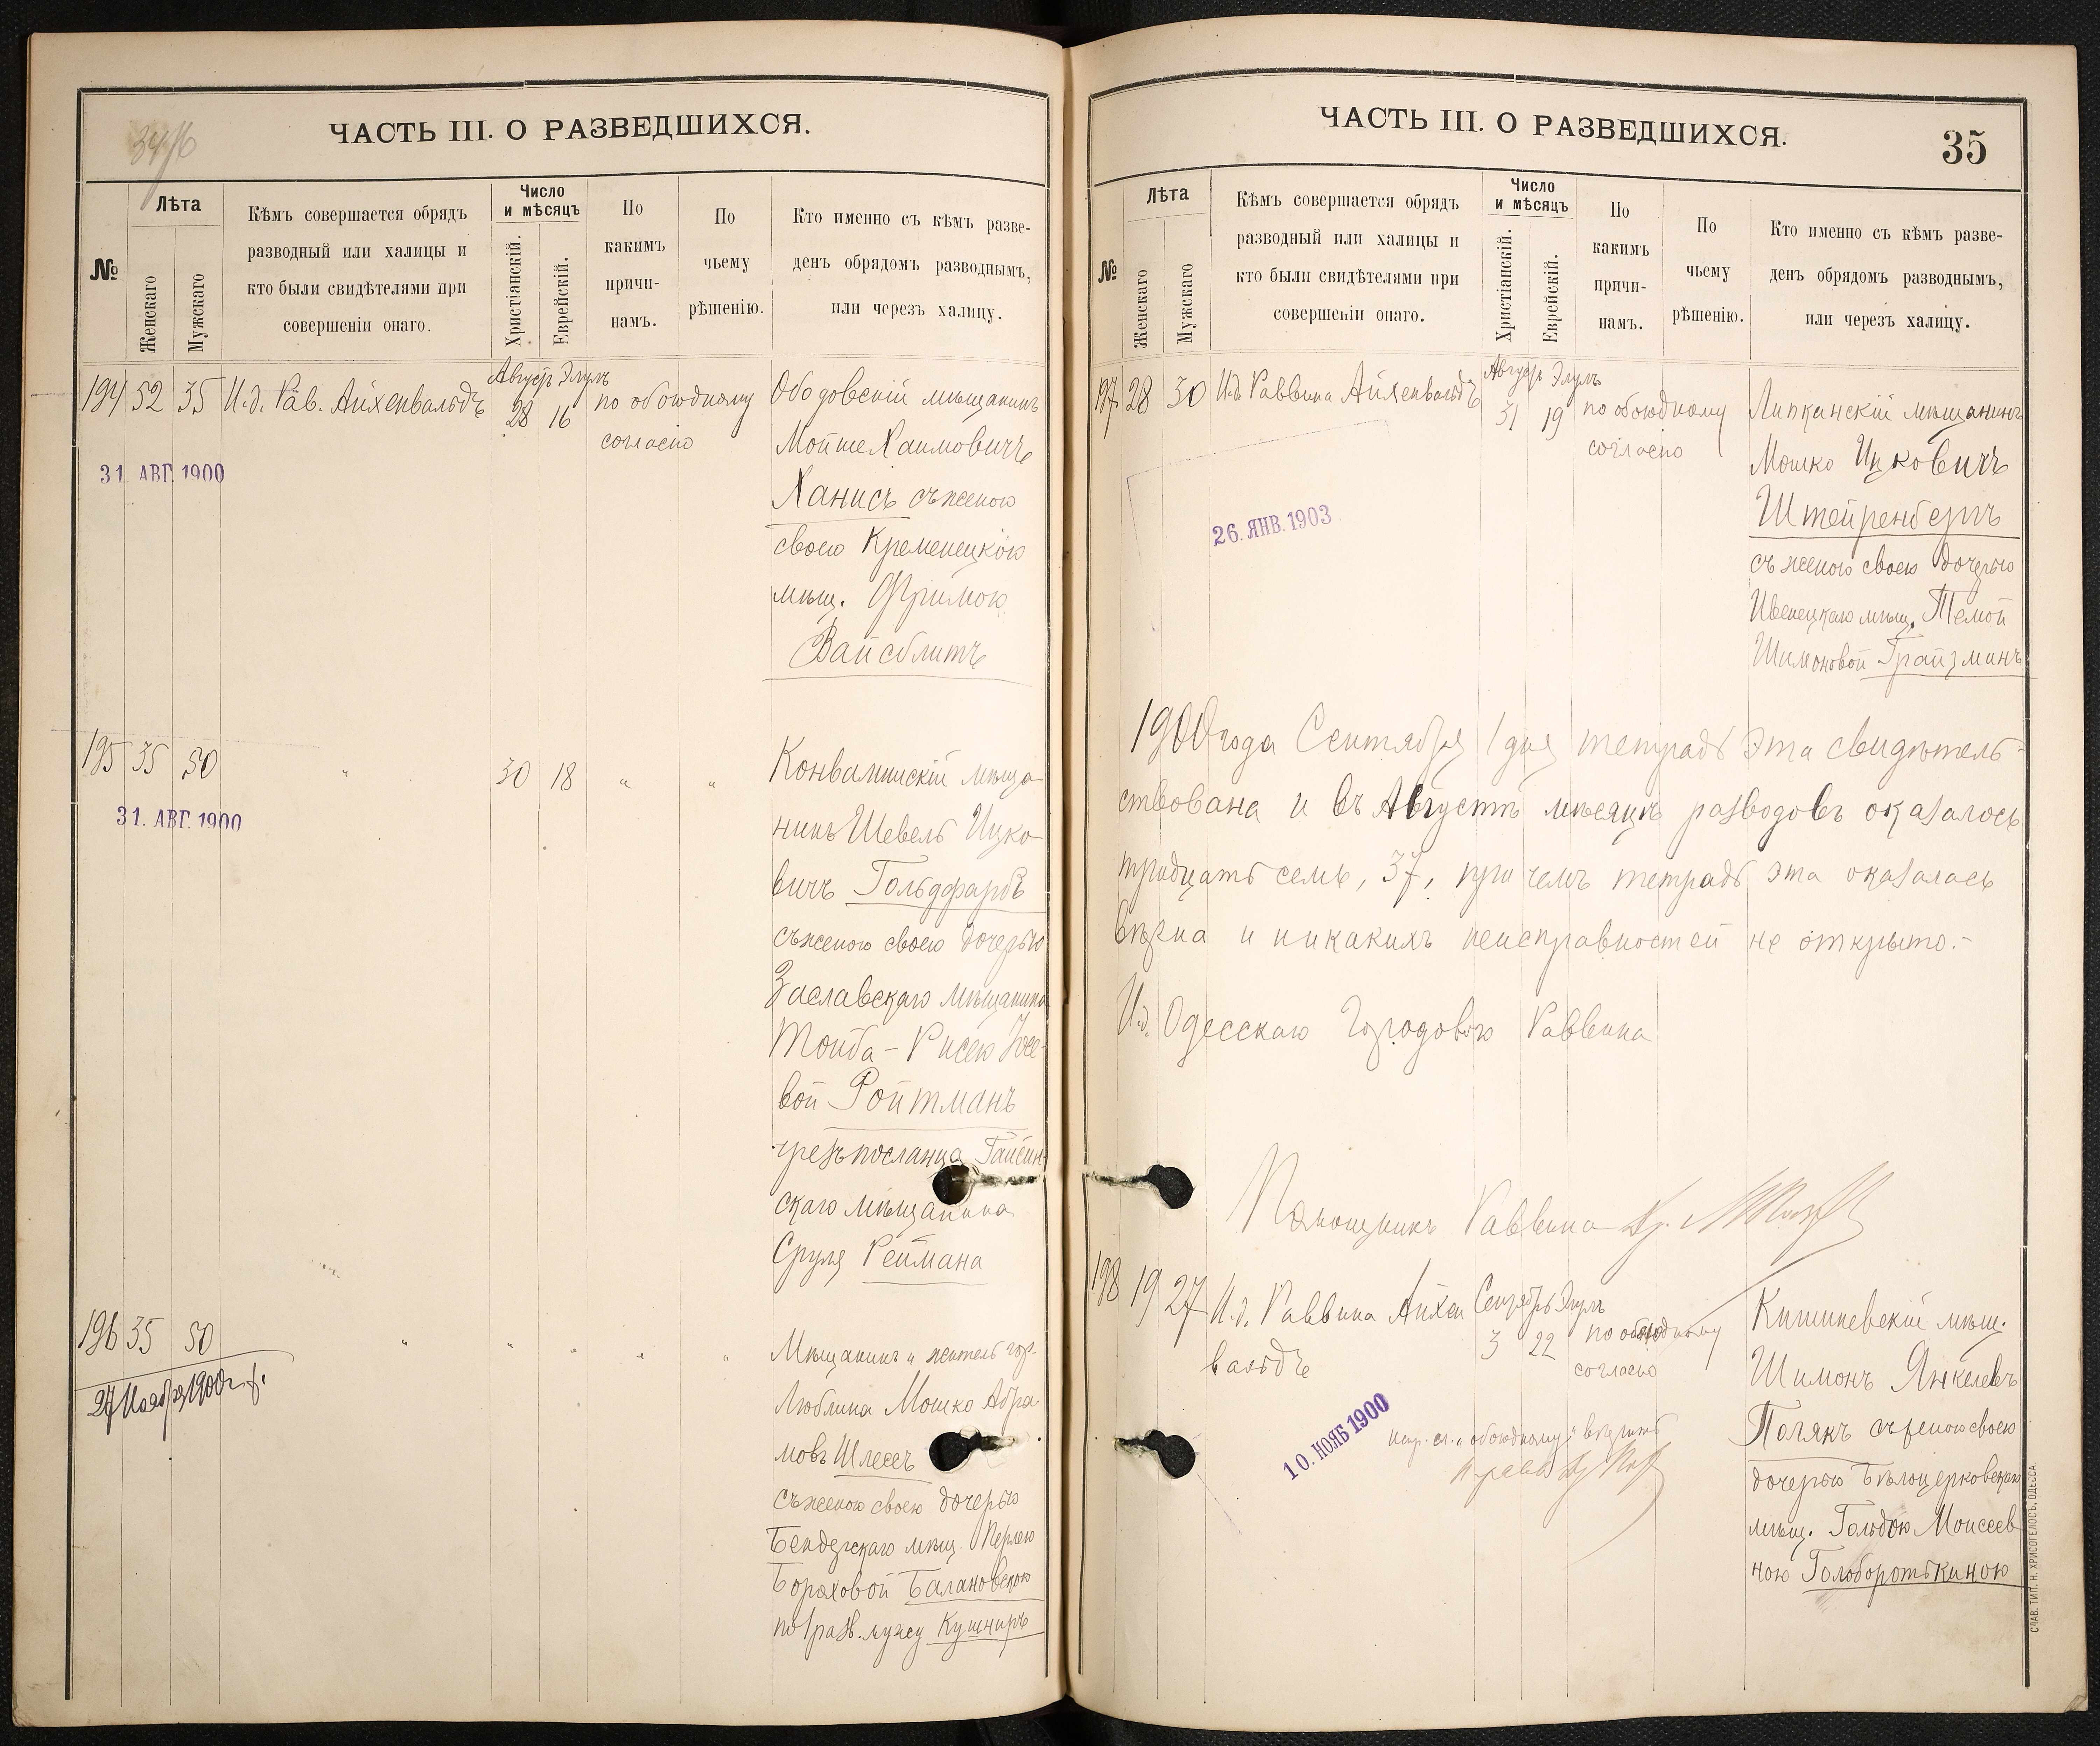 34
ЧАСТЬ III. О РАЗВЕДШИХСЯ.
№
Лѣта
Женскаго
Мужскаго
Кѣмъ совершается обрядъ
разводный или халицы и
кто были свидѣтелями при
совершеніи онаго.
Число
и мѣсяцъ
Христіанскій.
Еврейскій.
По
какимъ
причи-
намъ.
По
чьему
рѣшенію.
Кто именно съ кѣмъ разве-
денъ обрядомъ разводнымъ,
или черезъ халицу.
194 52 35 И.д. Рав. Айхенвальдъ
Августъ Элулъ
28 16
по обоюдному
согласію
31. АВГ. 1900
Ободовскій мѣщанинъ
Мойше Хаимовичъ
Ханисъ съ женою
своею Кременецкою
мѣщ. Фримою
Вайсблитъ
195 35 50 " 30 18 " "
31. АВГ. 1900
мѣща-
нинъ Шевель Ицко-
вичъ Гольдфарбъ
съ женою своею дочерью
Заславскаго мѣщанина
Тойба-Рисею Іосе-
вой Ройтманъ
чрезъ посланца Гайсин-
скаго мѣщанина
Сруля Реймана
196 35 50 " " " " "
27 Ноября 1900 г.
Мѣщанинъ и житель гор.
Люблина Мошко Абра-
мовъ Шлесъ
съ женою своею дочерью
Бендерскаго мѣщ. Перлею
Бораховой Балановскою
по разв. мужу Кушниръ
ЧАСТЬ III. О РАЗВЕДШИХСЯ.
35
№
Лѣта
Женскаго
Мужскаго
Кѣмъ совершается обрядъ
разводный или халицы и
кто были свидѣтелями при
совершеніи онаго.
Число
и мѣсяцъ
Христіанскій.
Еврейскій.
По
какимъ
причи-
намъ.
По
чьему
рѣшенію.
Кто именно съ кѣмъ разве-
денъ обрядомъ разводнымъ,
или черезъ халицу.
197 28 30 И.д. Раввина Айхенвальдъ
Августъ Элулъ
31 19
по обоюдному
согласію
26. ЯНВ. 1903
Липканскій мѣщанинъ
Мошко Ицковичъ
Штейренбергъ
съ женою своею дочерью
Ивенецкаго мѣщ. Темой
Шимоновой Грайзманъ
1900 года Сентября 1 дня тетрадь эта свидѣтель-
ствована и въ Августѣ мѣсяцѣ разводовъ оказалось
тридцать семь, 37, при чемъ тетрадь эта оказалась
вѣрна и никакихъ неисправностей не открыто.-
И.д. Одесскаго Городового Раввина
Помощникъ Раввина Др.
198 19 27 И.д. Раввина Айхен
вальдъ
Сентябрь Элулъ
3 22
по обоюдному
согласію
10. НОЯБ 1900
"обоюдному" вѣрить
Кишиневскій мѣщ.
Шимонъ Янкелевъ
Полякъ съ женою своею
дочерью Бѣлоцерковскаго
мѣщ. Гольдою Моисеев
ною Голоборотькиною
СЛАВ. ТИП. Н. ХРИСОГЕЛОСЪ, ОДЕССА.